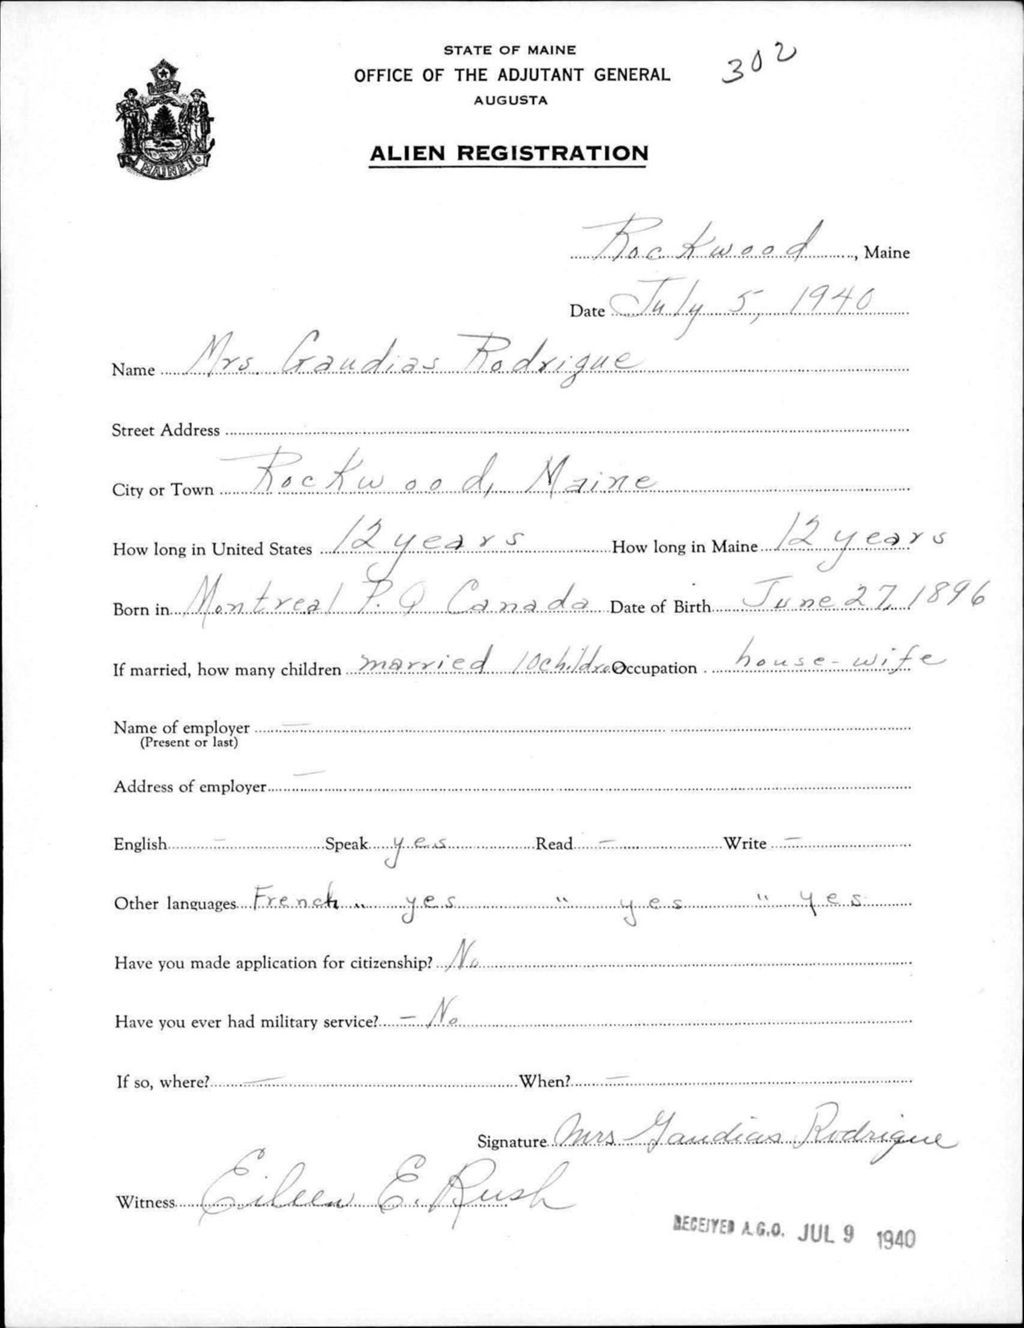 STATE OF MAINE
OFFICE OF THE ADJUTANT GENERAL
AUGUSTA
302
ALIEN REGISTRATION
MAINE
Rockwood, Maine
Date July 5, 1940
Name Mrs. Gaudias Rodrigue
Street Address
City or Town Rockwood, Maine
How long in United States 12 years How long in Maine 12 years
Born in Montreal P.Q Canada Date of Birth June 27, 1896
If married, how many children married 10 children Occupation house-wife
Name of employer —
(Present or last)
Address of employer —
English — Speak yes Read — Write —
Other languages French " yes " yes " yes
Have you made application for citizenship? No
Have you ever had military service? — No
If so, where? — When? —
Signature Mrs Gaudias Rodrigue
Witness Eileen E. Rush
RECEIVED A.G.O. JUL 9 1940